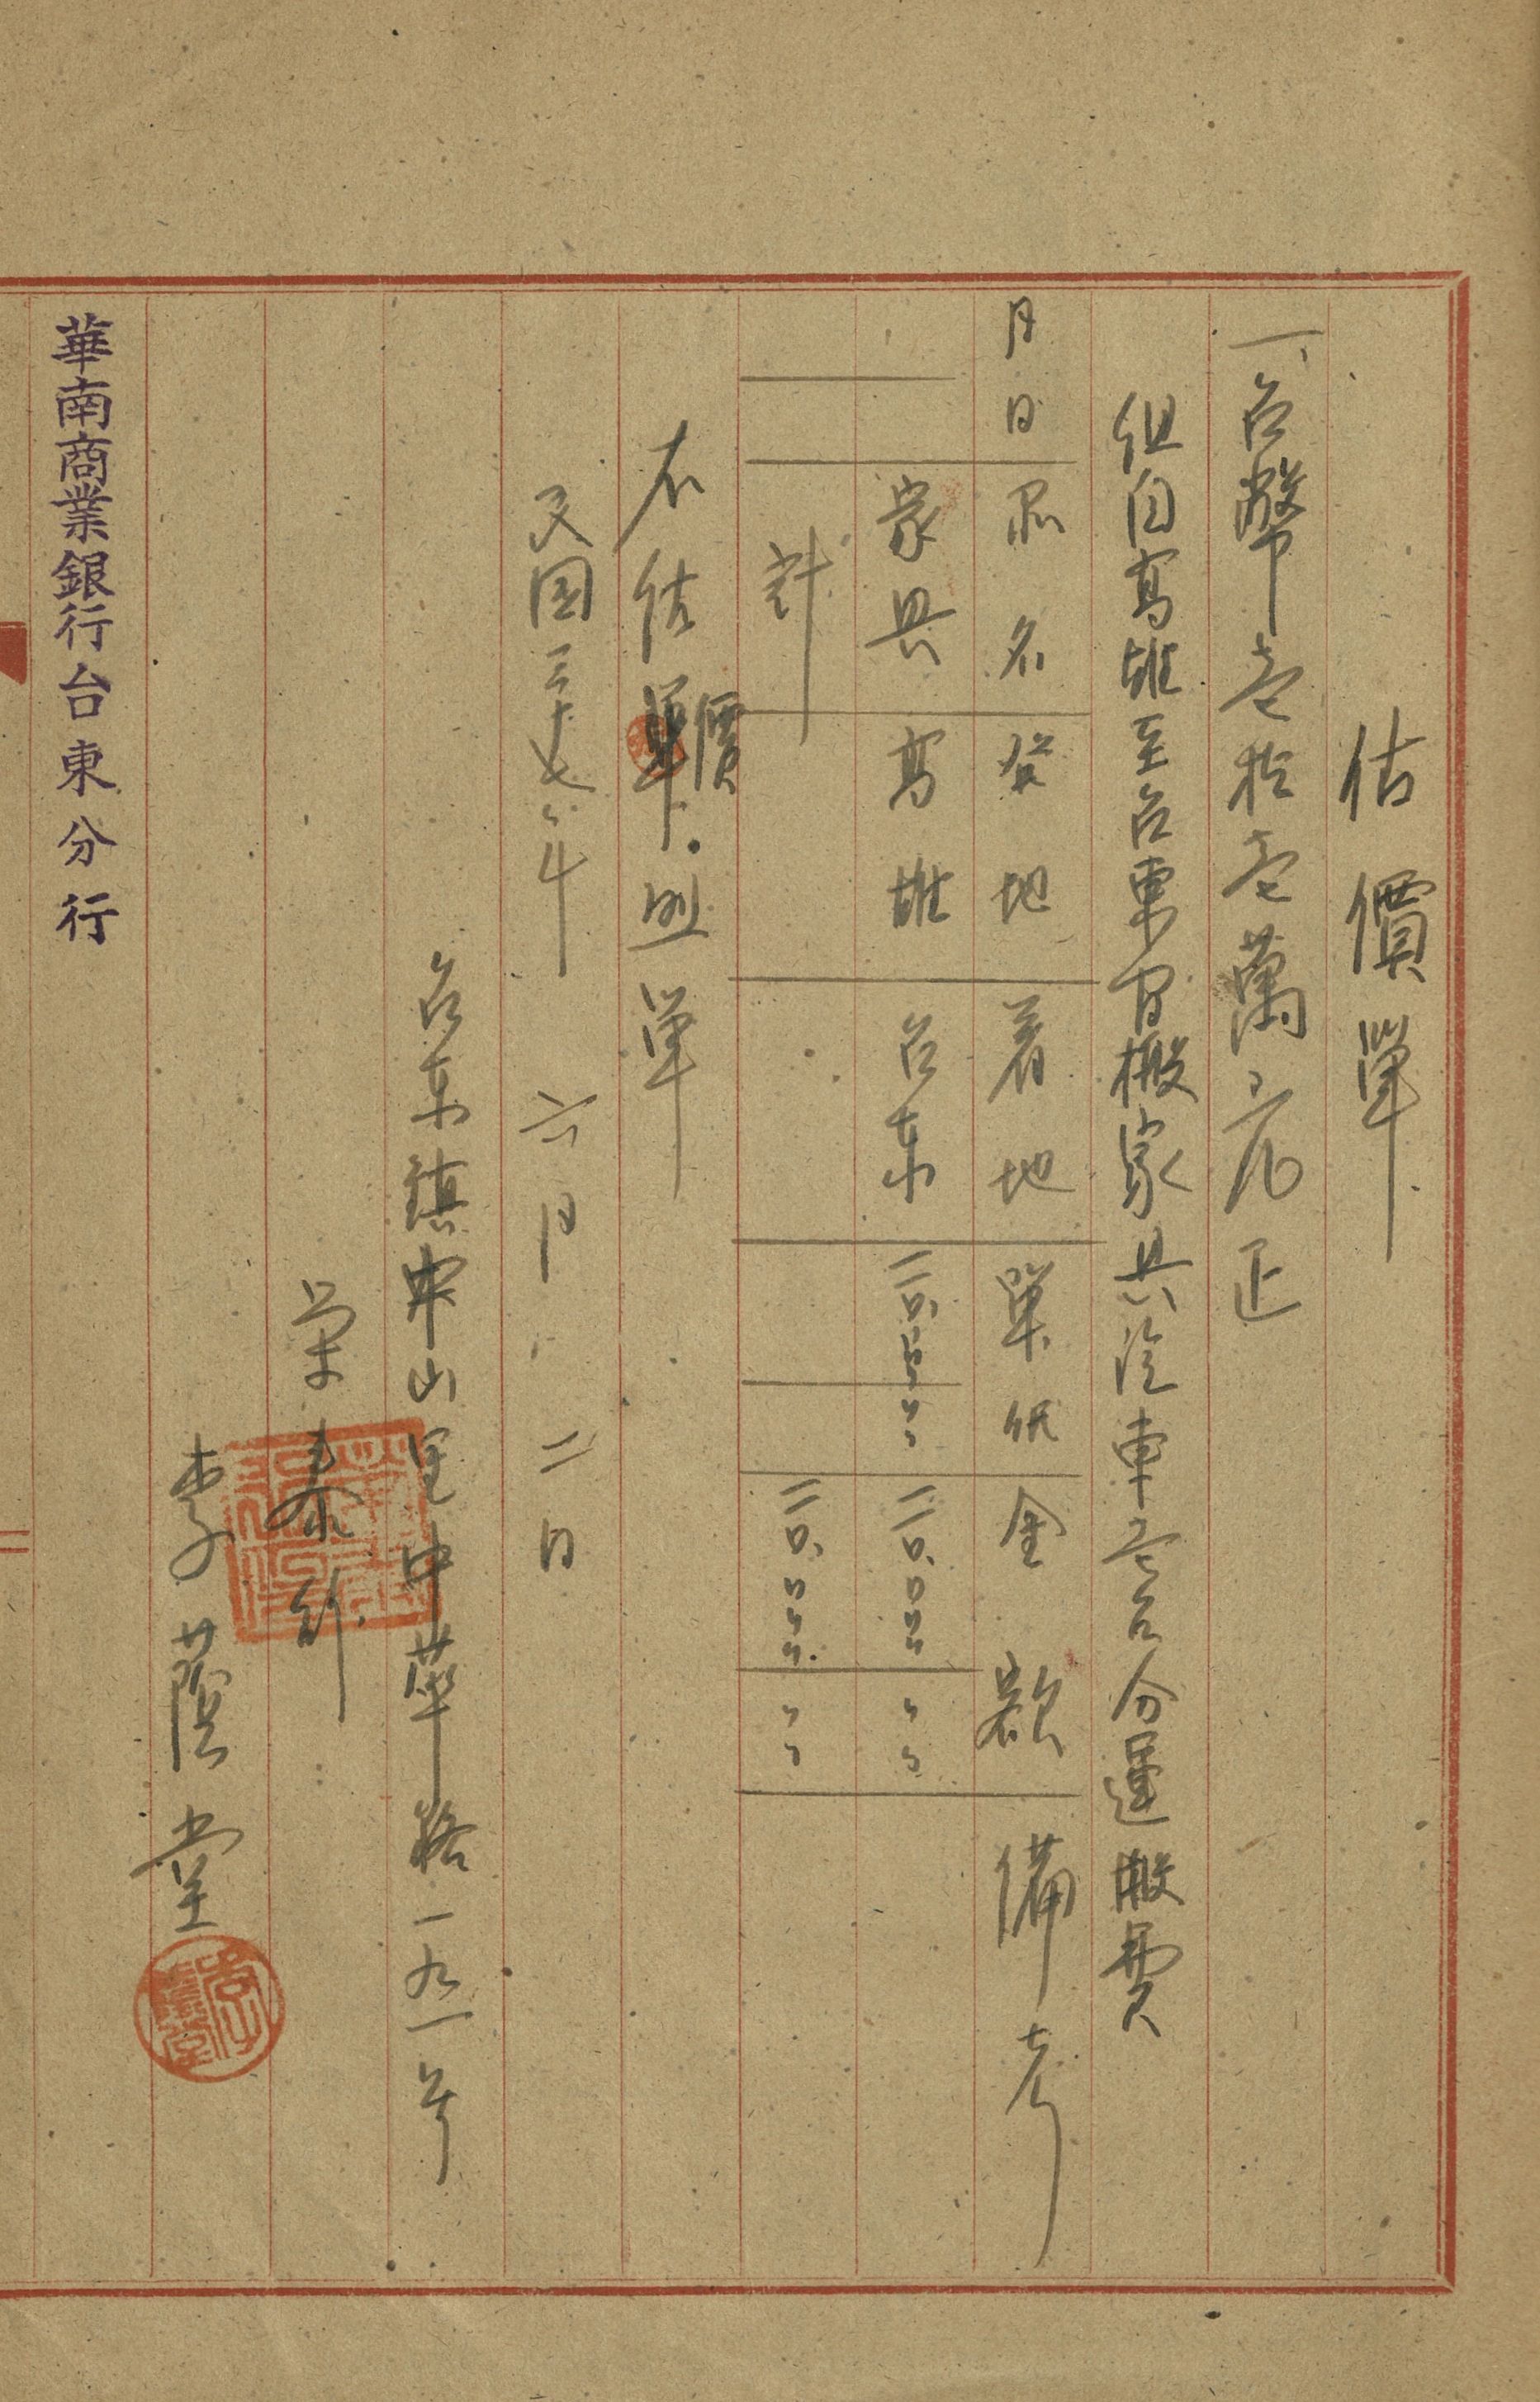 估價單
一、台幣壹拾壹萬元正
但自高雄至台東間搬家具汽車壹台分運搬費
月日 品名 發地 着地 單價 金額 備考
家具 高雄 台東 一一〇、〇〇〇〇〇 一一〇、〇〇〇〇〇
計 一一〇、〇〇〇〇〇
右估價單
民國三十七年 六月 二日
台東鎮中山里中華路一九一號
榮泰行
李蔭堂
李蔭堂
華南商業銀行台東分行